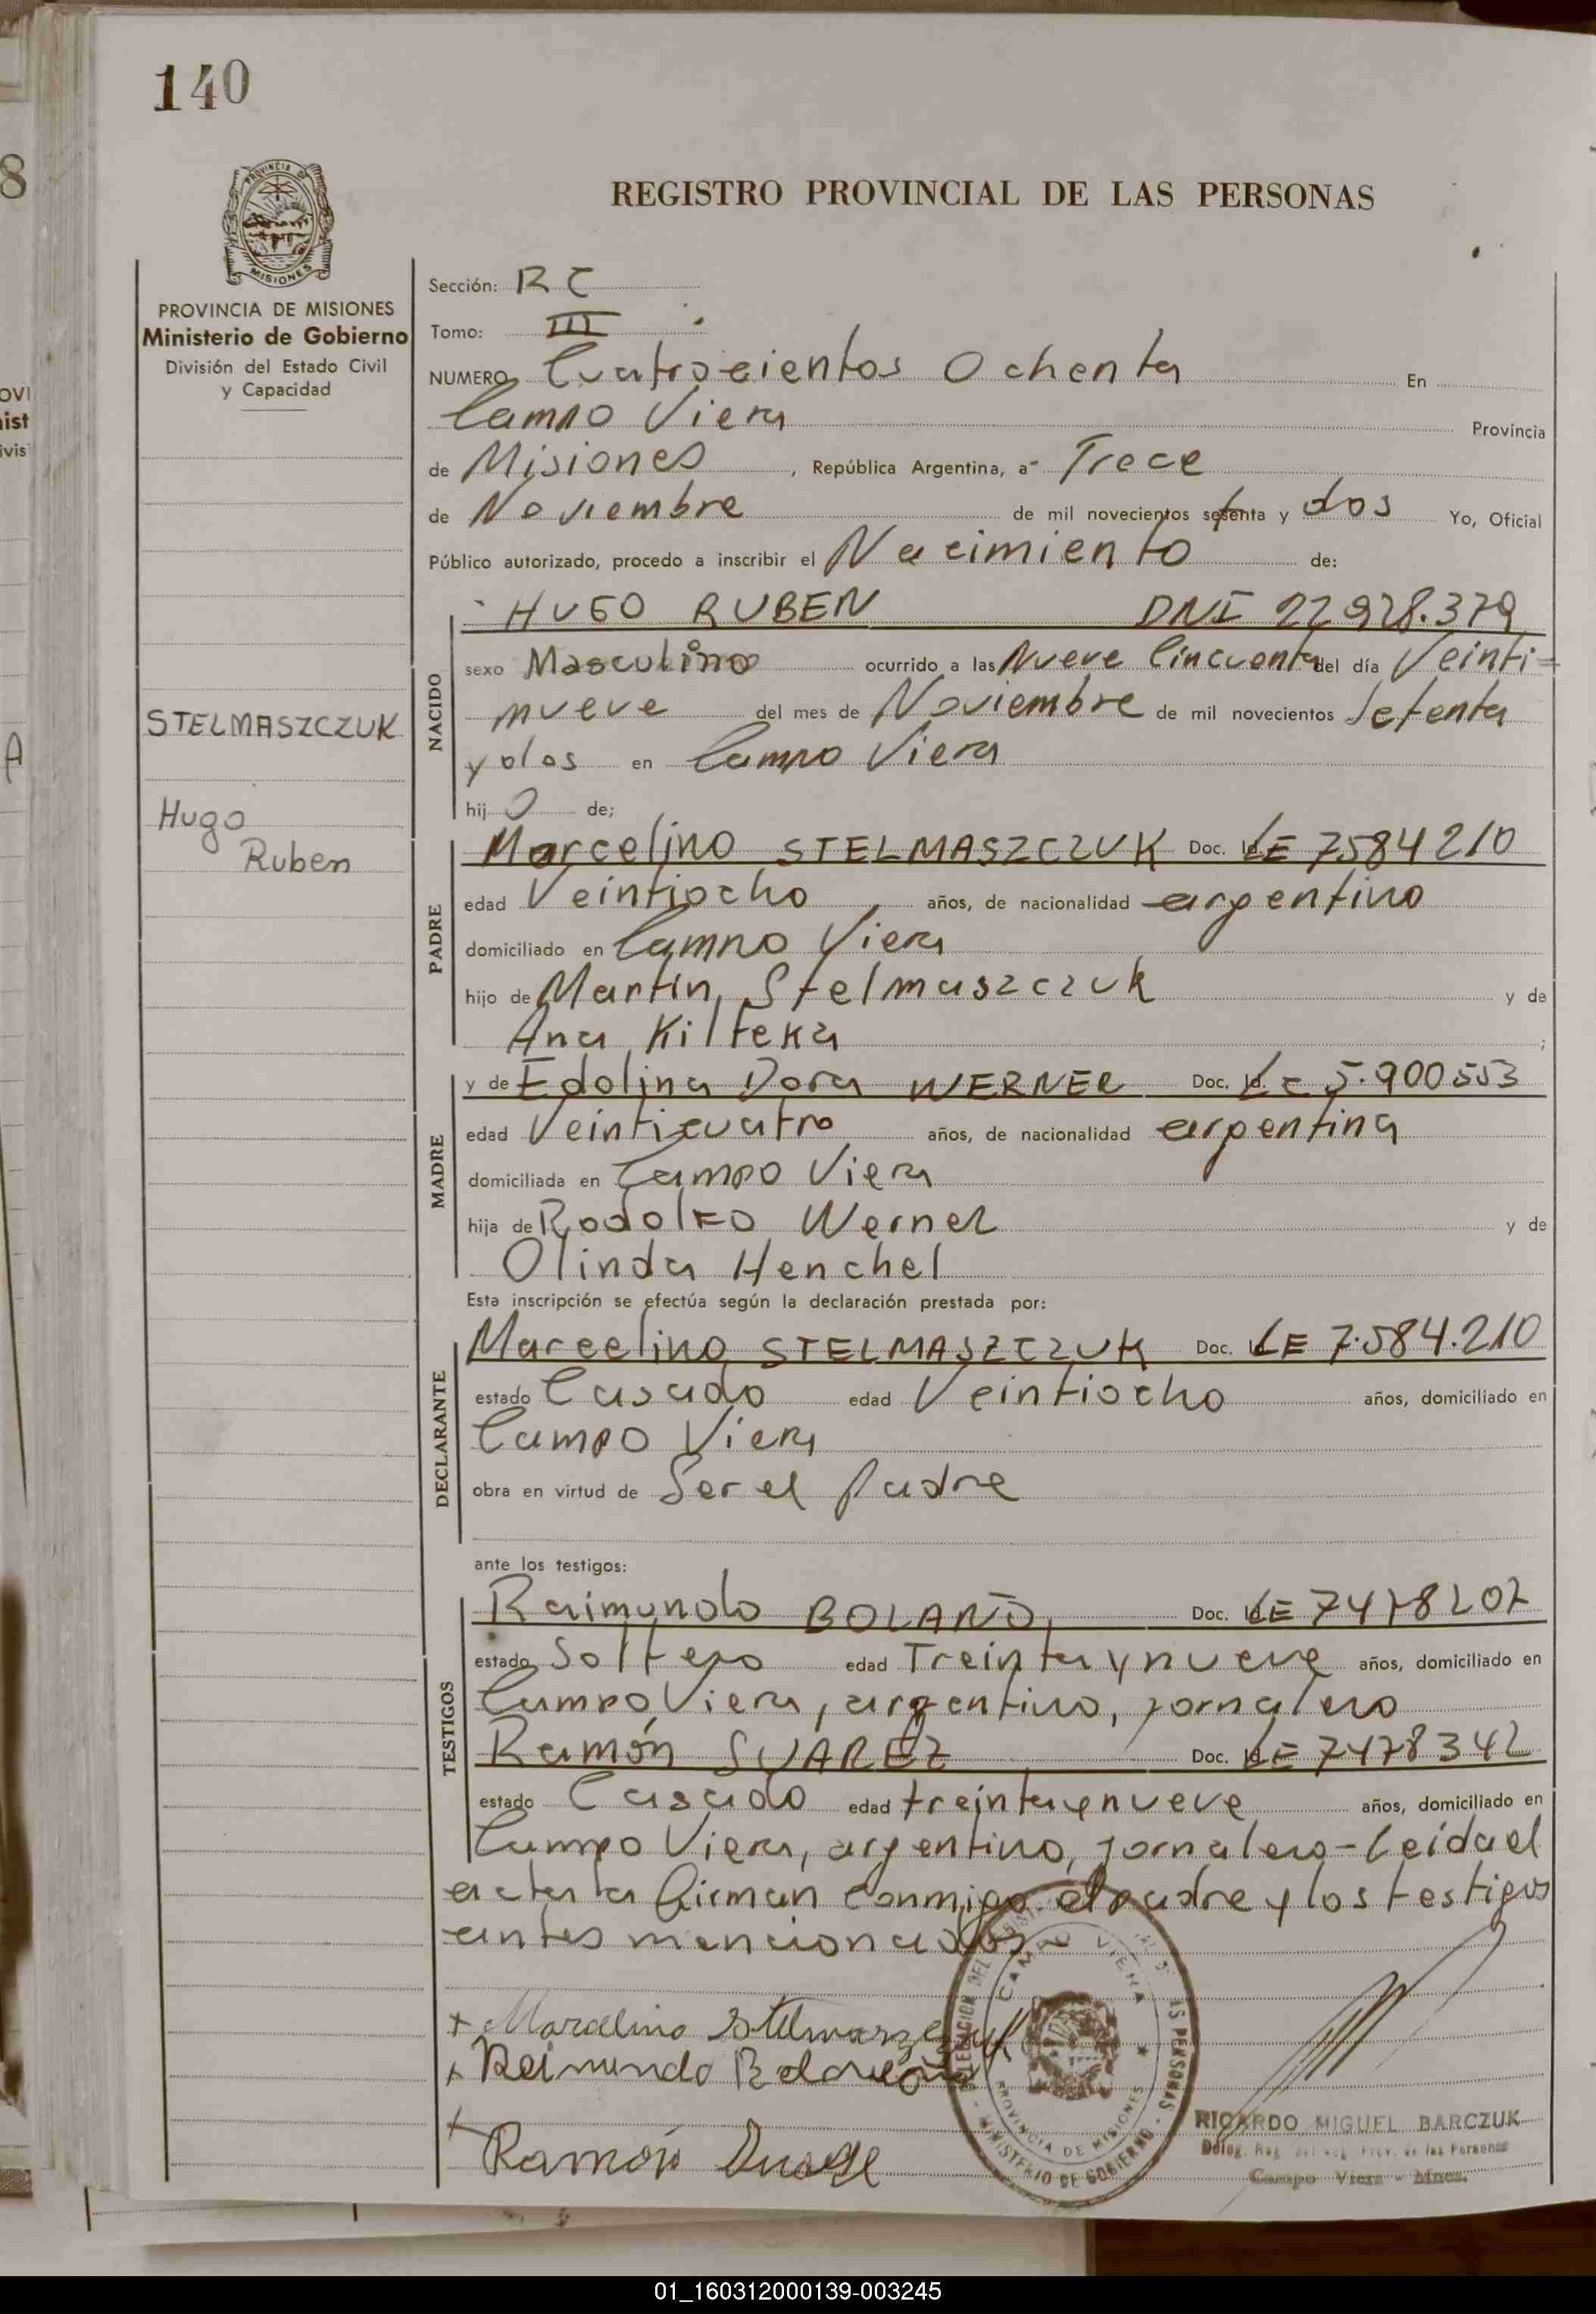 140
REGISTRO PROVINCIAL DE LAS PERSONAS
PROVINCIA DE MISIONES
Ministerio de Gobierno
División del Estado Civil
y Capacidad
STELMASZCZUK
Hugo
Ruben
Sección: R C
Tomo: III
NUMERO Cuatrocientos Ochenta En
Campo Viera Provincia
de Misiones, República Argentina, a Trece
de Noviembre de mil novecientos setenta y dos Yo, Oficial
Público autorizado, procedo a inscribir el Nacimiento de:
HUGO RUBEN DNI 22 928.379
NACIDO
sexo Masculino ocurrido a las Nueve Cincuenta del día Veinti=
nueve del mes de Noviembre de mil novecientos Setenta
y dos en Campo Viera
hij o de;
PADRE
Marcelino STELMASZCZUK Doc. LE 7584210
edad Veintiocho años, de nacionalidad argentino
domiciliado en Campo Viera
hijo de Martin Stelmaszczuk y de
Ana Kilteka;
MADRE
y de Edolina Dora WERNER Doc. Id. LC 5.900553
edad Veinticuatro años, de nacionalidad argentina
domiciliada en Campo Viera
hija de Rodolfo Werner y de
Olinda Henchel
Esta inscripción se efectúa según la declaración prestada por:
DECLARANTE
Marcelino STELMASZCZUK Doc. LE 7.584.210
estado Casado edad Veintiocho años, domiciliado en
Campo Viera
obra en virtud de Ser el padre
ante los testigos:
TESTIGOS
Raimundo BOLAÑO, Doc. LE 7478207
estado Soltero edad Treinta y nueve años, domiciliado en
Campo Viera, argentino, jornalero
Ramón SUAREZ Doc. LE 7478342
estado Casado edad treinta y nueve años, domiciliado en
Campo Viera, argentino, jornalero - Leida el
acta la firman conmigo el padre y los testigos
antes mencionados
+ Marcelino Stelmaszczuk
+ Reimundo
+
Ramón
CAMPO VIERA
PROVINCIA DE MISIONES
MINISTERIO DE GOBIERNO
RICARDO MIGUEL BARCZUK
Deleg. de las Personas
Campo Viera - Mnes.
01_160312000139-003245